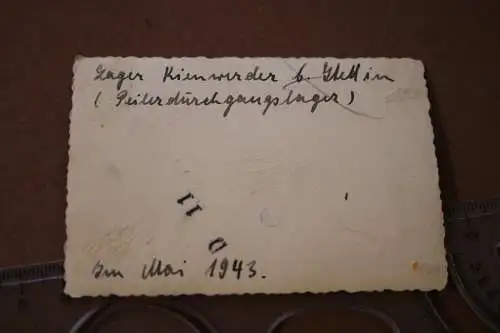 Lager Kienwerder b. Stettin
(Peilerdurchgangslager)
11
0
Im Mai 1943.